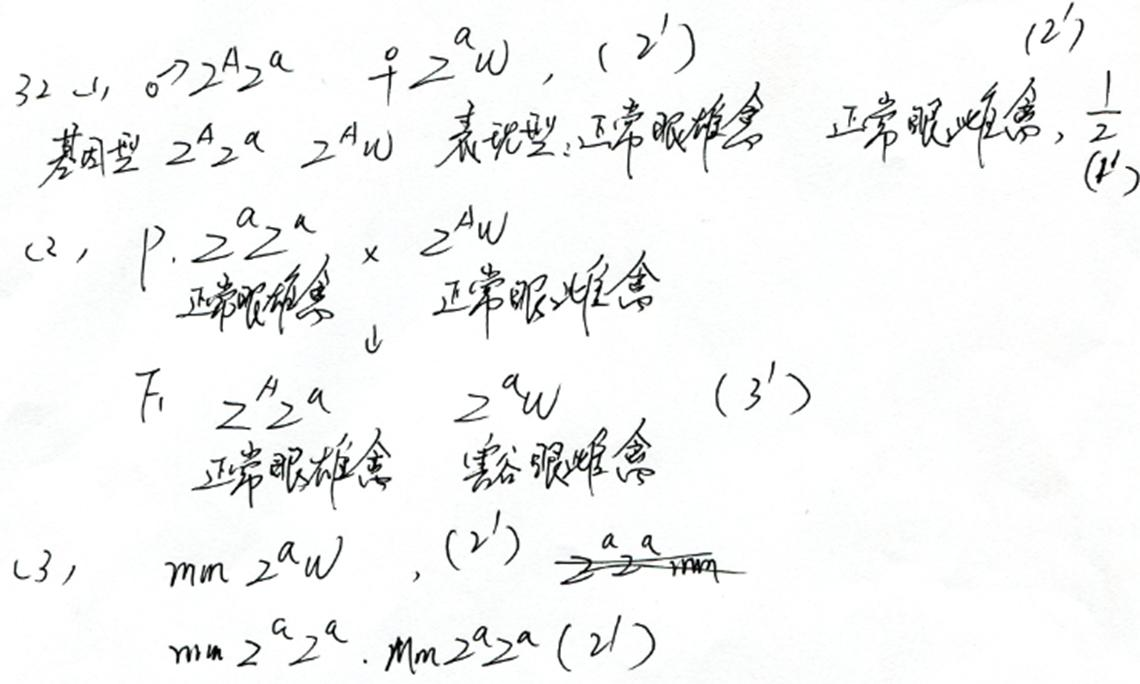 (2')
32 (1) ♂Z^A Z^a ♀Z^a W, (2')
基因型 Z^A Z^a Z^A W 表现型:正常眼雄禽 正常眼雌禽, 1/2 (2')
(2) P. Z^a Z^a × Z^A W
正常眼雄禽 正常眼雌禽
↓
F₁ Z^A Z^a Z^a W (3')
正常眼雄禽 豁眼雌禽
(3) mm Z^a W , (2') Z^a Z^a mm
mm Z^a Z^a . Mm Z^a Z^a (2')